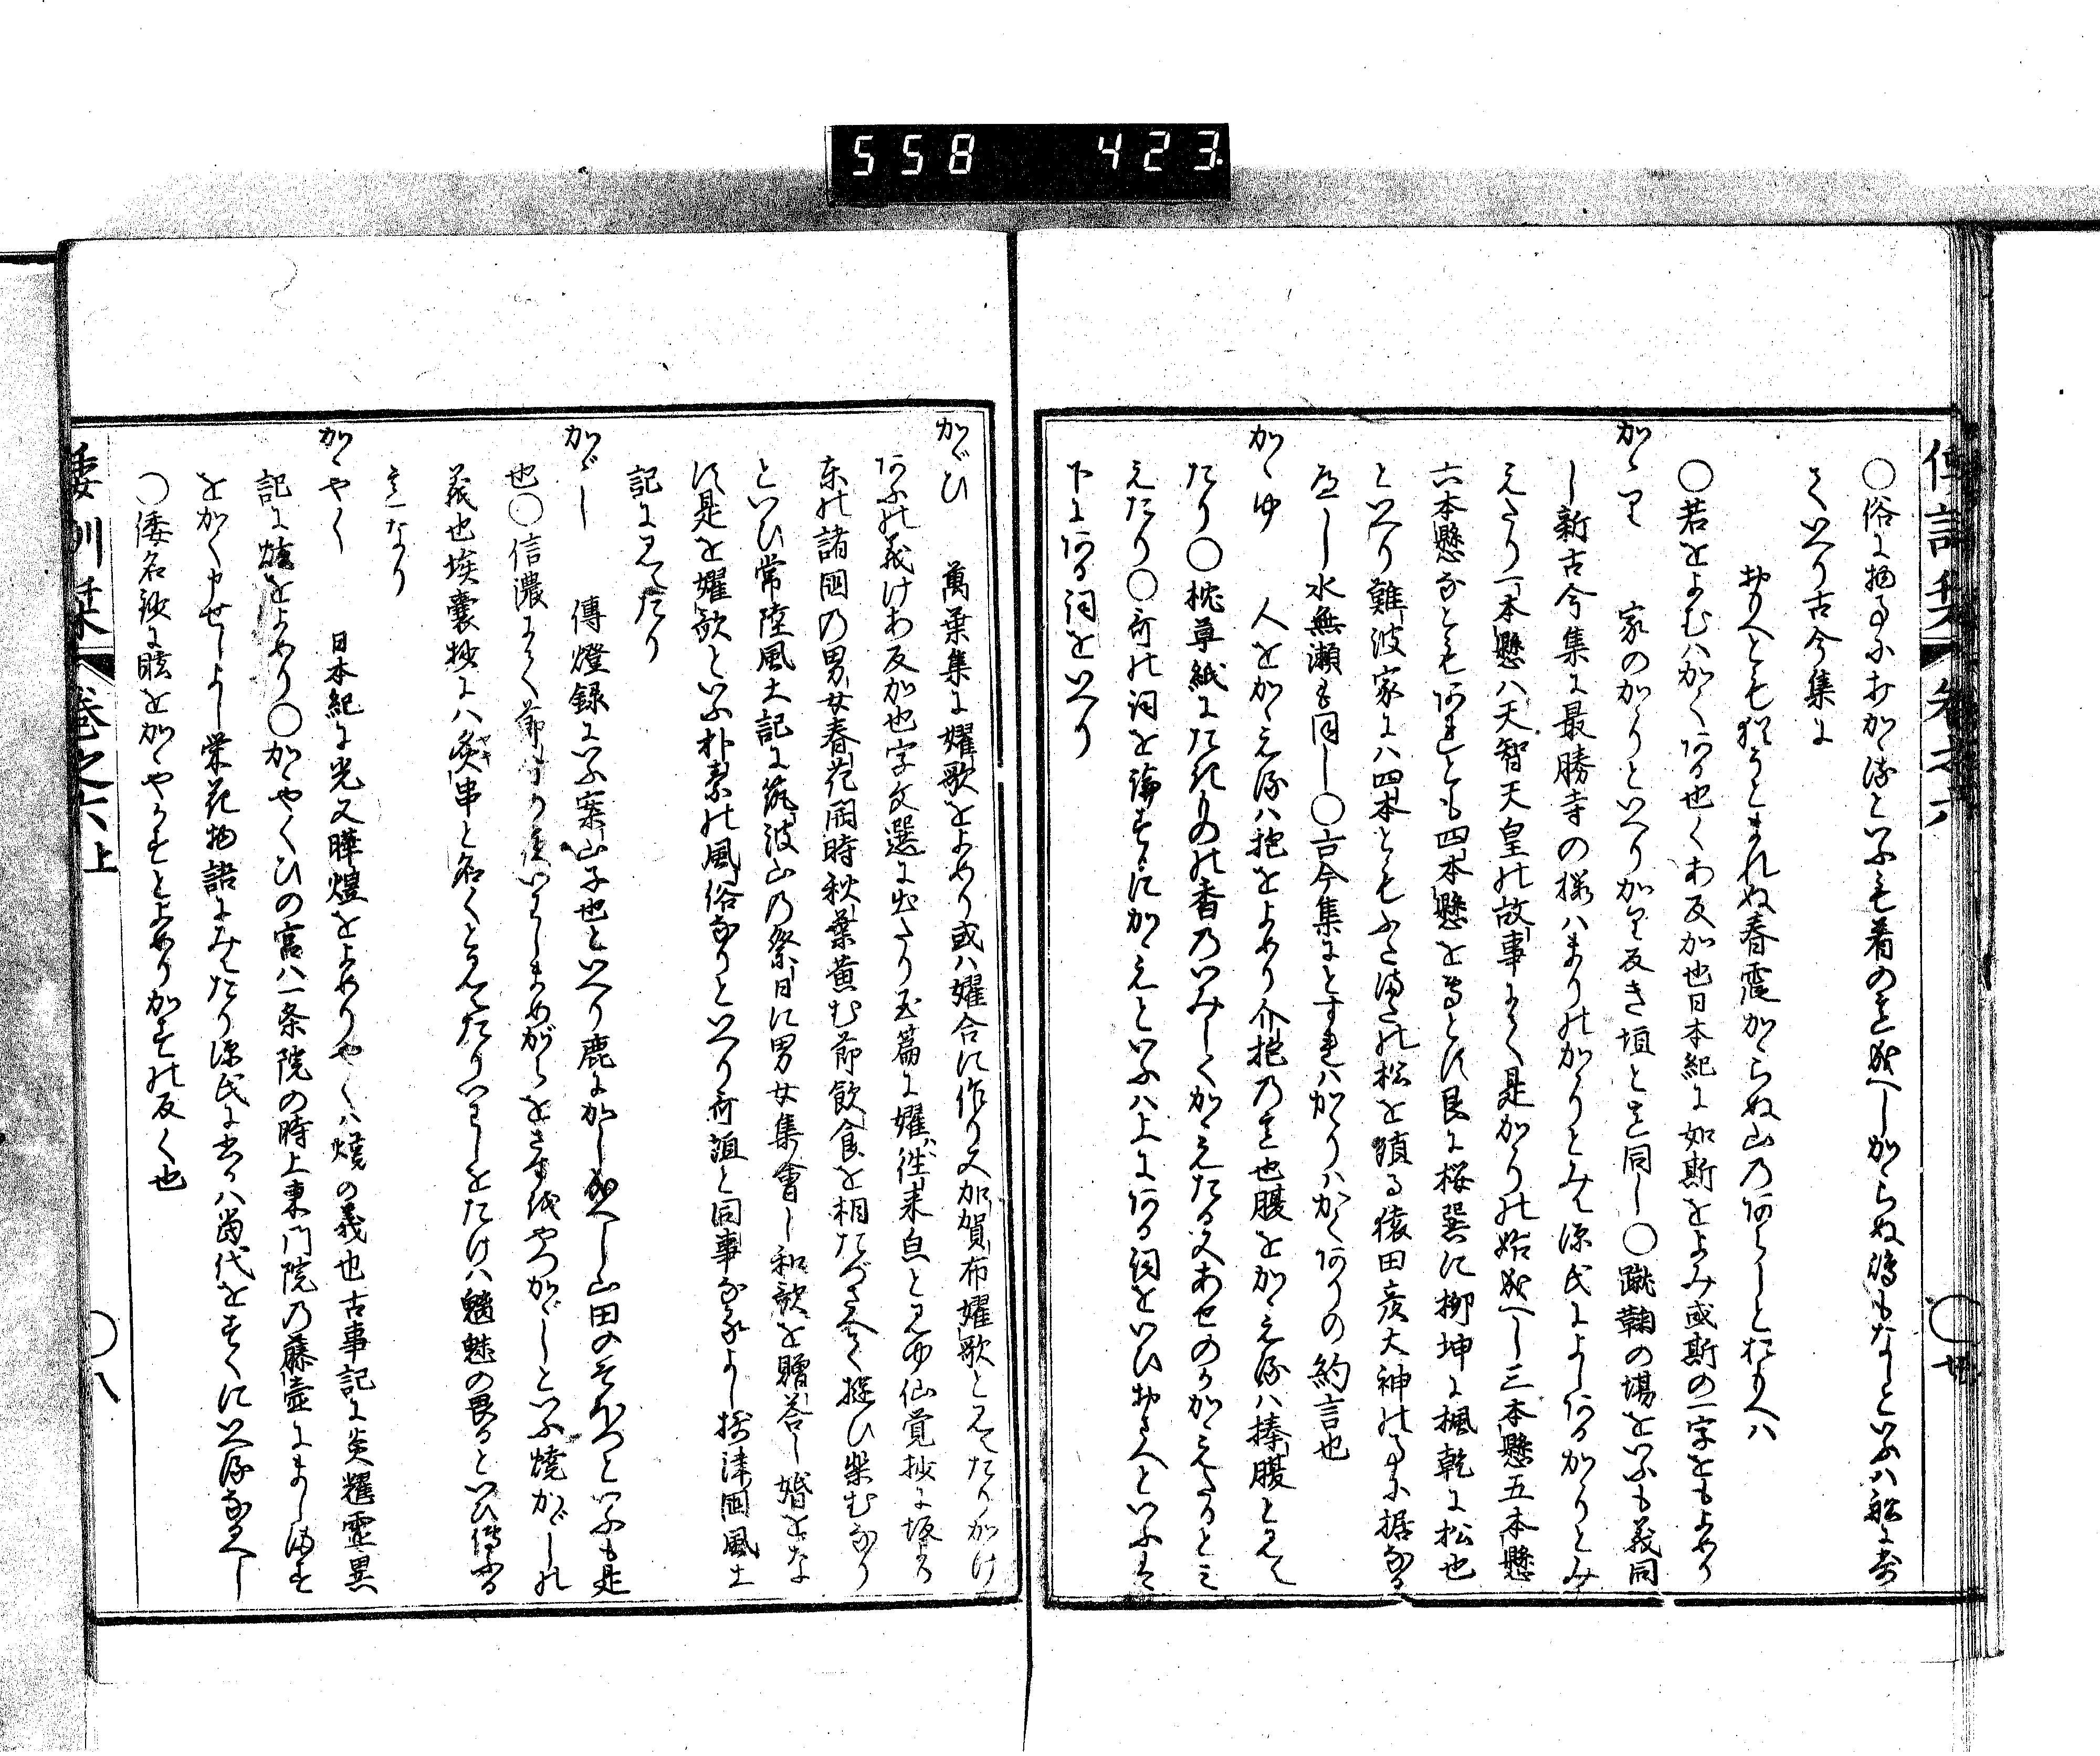 558 423
○俗に物事にかゝるといふも着の意成へしかゝらぬ嶋もなしといふハ船に
ていへり古今集に
おもへとも猶うとまれぬ春霞かゝらぬ山のあらしとおもへハ
○若をよむハかくある也くわ反か也日本紀に如斯をよみ或斯の一字をもよめり
かゝり 家のかゝりといへりかり反き垣と意同し○蹴鞠の場をいふも義同
し新古今集に最勝寺の桜ハまりのかゝりとみえ源氏によしあるかゝりとみ
えたり一本懸ハ天智天皇の故事にて是かゝりの始成へし三本懸五本懸
六本懸なともあれとも四本懸を常とす艮に桜巽に柳坤に楓乾に松也
といへり難波家にハ四本ともふたまたの松を頭る猿田彦大神の事に据なる
へし水無瀬も同し○古今集にとすれハかゝりハかくありの約言也
かゝゆ 人をかゝえるハ抱をよめり介抱の意也腹をかゝえるハ捧腹とみえ
たり○枕草紙にたきものの香のいみしくかゝえたる又あせのかゝえたるとみ
えたり○哥の詞を論するにかゝえといふハ上にある詞をいひおさへといふは
下にある詞をいへり
かゞひ 萬葉集に嬥歌をよめり或ハ嬥合に作り又加賀布嬥歌とみえたりかけ
あふの義けあ反か也字文選に出たり玉篇に嬥ハ往来皃とみゆ仙覚抄に坂より
東の諸国の男女春花開時秋葉黄む節飲食を相たづさへて遊ひ楽むなり
といひ常陸風土記に筑波山の祭日に男女集會し和歌を贈答し婚をな
す是を嬥歌といふ朴素の風俗なりといへり哥垣と同事なるよし摂津国風土
記にみえたり
かゞし 傳燈録にいふ案山子也といへり鹿おかし成へし山田のそほつといふも是
也○信濃にて節分の夜いわしまめがらをさす成やつかゞしといふ燒かゞしの
義也埃囊抄にハ炙串と名くとみえたりいわしをたけハ魑魅の畏るといひ傳ふる
意なり
かゝやく 日本紀に光又曄煌をよめりやくハ燒の義也古事記に炎耀霊異
記に㷸をよめり○かゝやくひの宮ハ一条院の時上東門院の藤壺にましますを
をかく申せしよし栄花物語にみえたり源氏に書るハ当代をすくにいへるなるへし
○倭名鈔に眩をかゝやかすとよめりかすの反く也
倭訓栞 巻之六上
○八